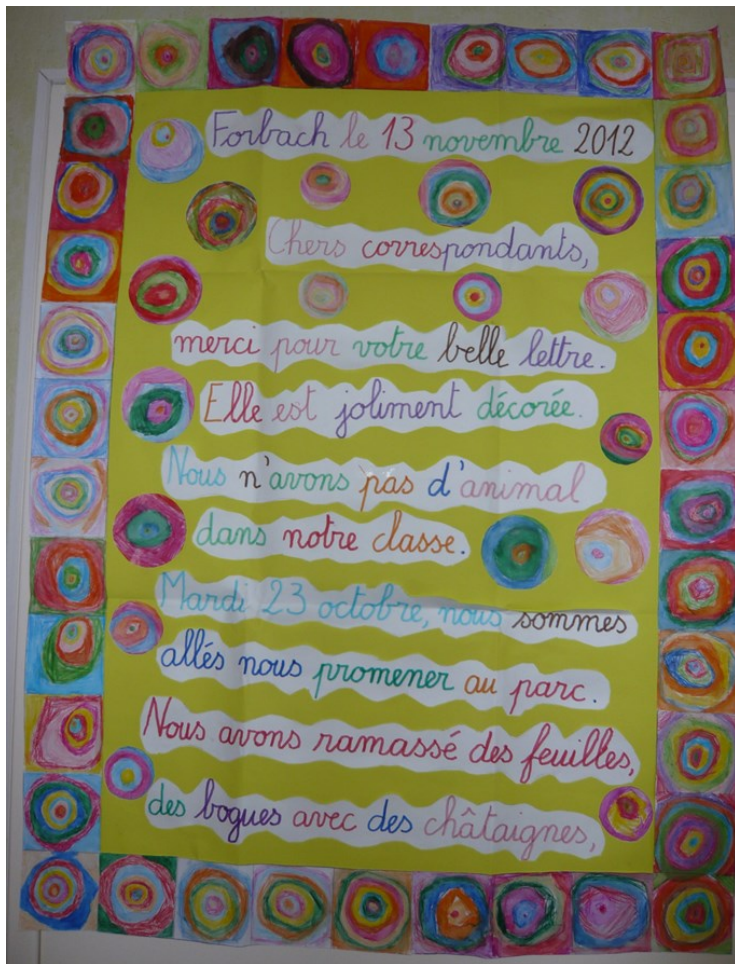 Forbach le 13 novembre 2012
Chers correspondants,
merci pour votre belle lettre.
Elle est joliment décorée.
Nous n'avons pas d'animal
dans notre classe.
Mardi 23 octobre, nous sommes
allés nous promener au parc.
Nous avons ramassé des feuilles,
des bogues avec des châtaignes,